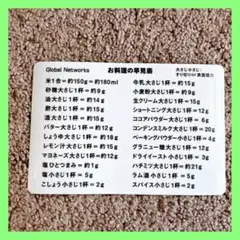 Global Networks
お料理の早見表
大さじ小さじ:
すり切りor表面張力
米1合=約150g=約180ml
砂糖大さじ1杯=約9g
油大さじ1杯=約14g
酢大さじ1杯=約15g
酒大さじ1杯=約15g
バター大さじ1杯=約12g
しょうゆ大さじ1杯=約18g
レモン汁大さじ1杯=約15g
マヨネーズ大さじ1杯=約12g
塩ひとつまみ=約1g
塩小さじ1杯=5g
こしょう小さじ1杯=2g
牛乳大さじ1杯=約15g
小麦粉大さじ1杯=約9g
生クリーム大さじ1杯=約15g
ショートニング大さじ1杯=約12g
ココアパウダー大さじ1杯=約6g
コンデンスミルク大さじ1杯=約20g
ベーキングパウダー小さじ1杯=約4g
グラニュー糖大さじ1杯=約12g
ドライイースト小さじ1杯=約3g
ハチミツ大さじ1杯=約21g
ラム酒小さじ1杯=約5g
スパイス小さじ1杯=約2g